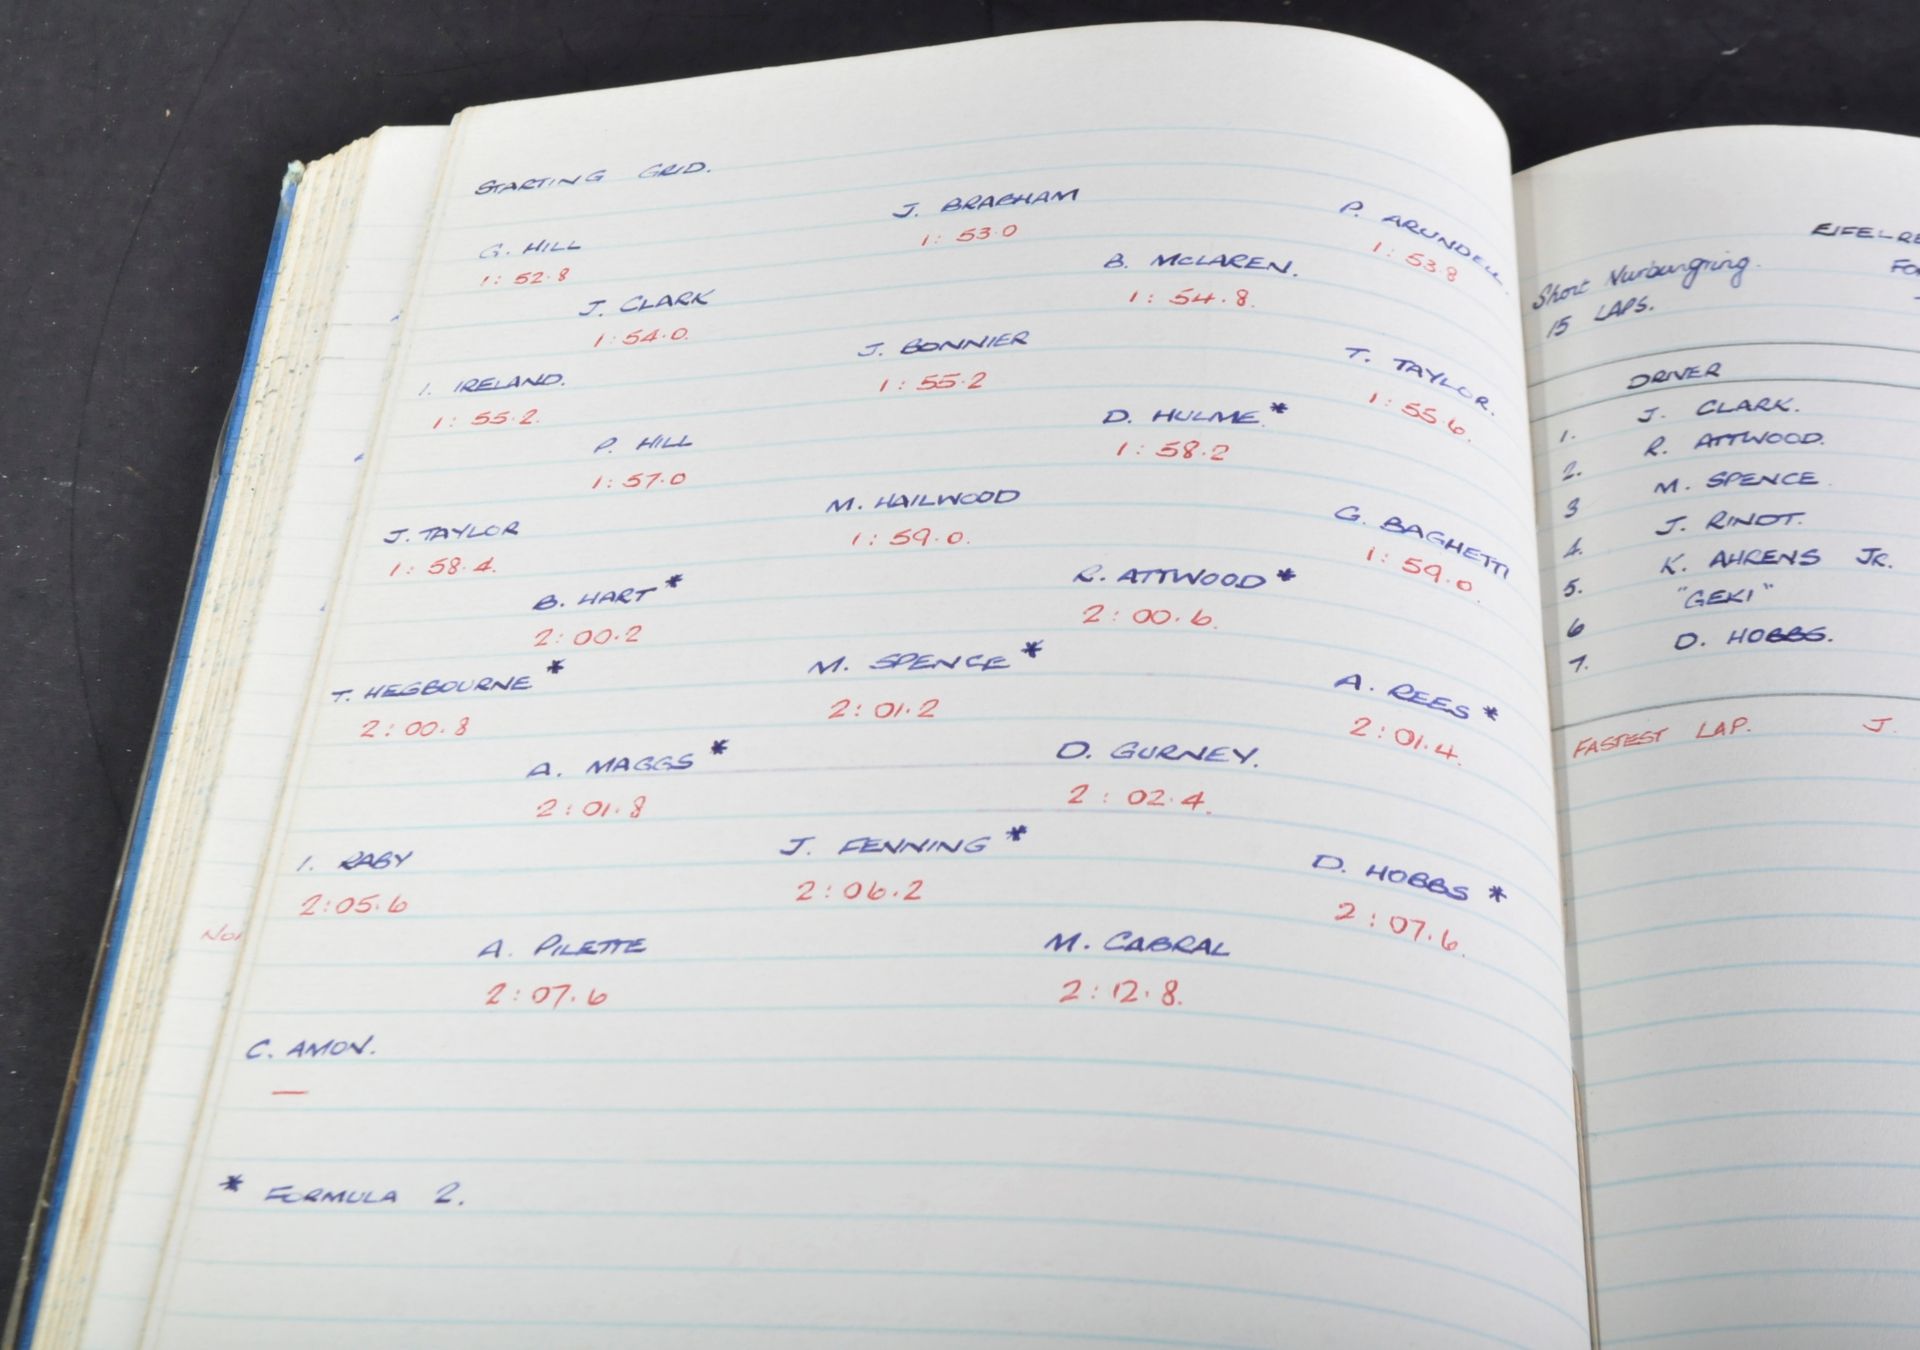 STARTING GRID.
G. HILL J. BRABHAM P. ARUNDELL.
1: 52.8 1: 53.0 1: 53.8
J. CLARK B. McLAREN.
1: 54.0. 1: 54.8.
I. IRELAND. J. BONNIER T. TAYLOR.
1: 55.2. 1: 55.2 1: 55.6.
P. HILL D. HULME.*
1: 57.0 1: 58.2
J. TAYLOR M. HAILWOOD G. BAGHETTI
1: 58.4. 1: 59.0. 1: 59.0.
B. HART* R. ATTWOOD*
2: 00.2 2: 00.6.
T. HEGBOURNE* M. SPENCE* A. REES*
2: 00.8 2: 01.2 2: 01.4.
A. MAGGS* D. GURNEY.
2: 01.8 2: 02.4.
I. RABY J. FENNING* D. HOBBS*
2:05.6 2:06.2 2:07.6.
A. PILETTE M. CABRAL
2:07.6 2:12.8.
C. AMON.
—
* FORMULA 2.
EIFELRE
Short Nurburgring.
15 LAPS.
DRIVER
1. J. CLARK.
2. R. ATTWOOD.
3 M. SPENCE.
4. J. RINDT.
5. K. AHRENS JR.
6 "GEKI"
7. D. HOBBS.
FASTEST LAP. J.